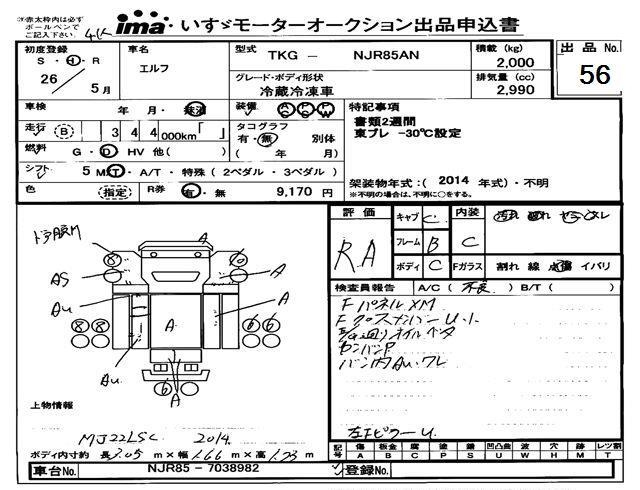 ※赤太枠内は必ず
ボールペンで
ご記入下さい
ima いすゞモーターオークション出品申込書
初度登録
S・H・R
26 5月
車名
エルフ
型式 TKG － NJR85AN
グレード・ボディ形状
冷蔵冷凍車
積載 (kg)
2,000
排気量 (cc)
2,990
出品 No.
56
車検 年 月・抹消
装備 A C P S P W
走行 (B) 3 4 4 000km「 」
タコグラフ
有・無 別体
( 年 月)
燃料 G・D HV 他( )
シフト 5 M/T・A/T・特殊 (2ペダル・3ペダル)
色 (指定) R券 有・無 9,170 円
特記事項
書類2週間
東プレ －30℃設定
架装物年式：( 2014 年式)・不明
※不明の場合は、不明に○をする。
評価 キャブ C 内装
RA フレーム B C
ボディ C Fガラス 割れ 線 点傷 イバリ
検査員報告 A/C ( 不良 ) B/T ( )
FパネルXM
FクロスメンバーU.I
バン内AU.ワレ
左FピラーU.
A
A5 A
Au A A
8 8 6 6
Au. A
上物情報
MJ22LSC 2014.
ボディ内寸約 長3.05 m × 幅1.66 m × 高1.73 m
記号 傷 板金 腐 塗 錆 凹凸曲 波 穴 跡 レツ割
A B C P S U W H M T
車台No. NJR85 － 7038982 登録No.